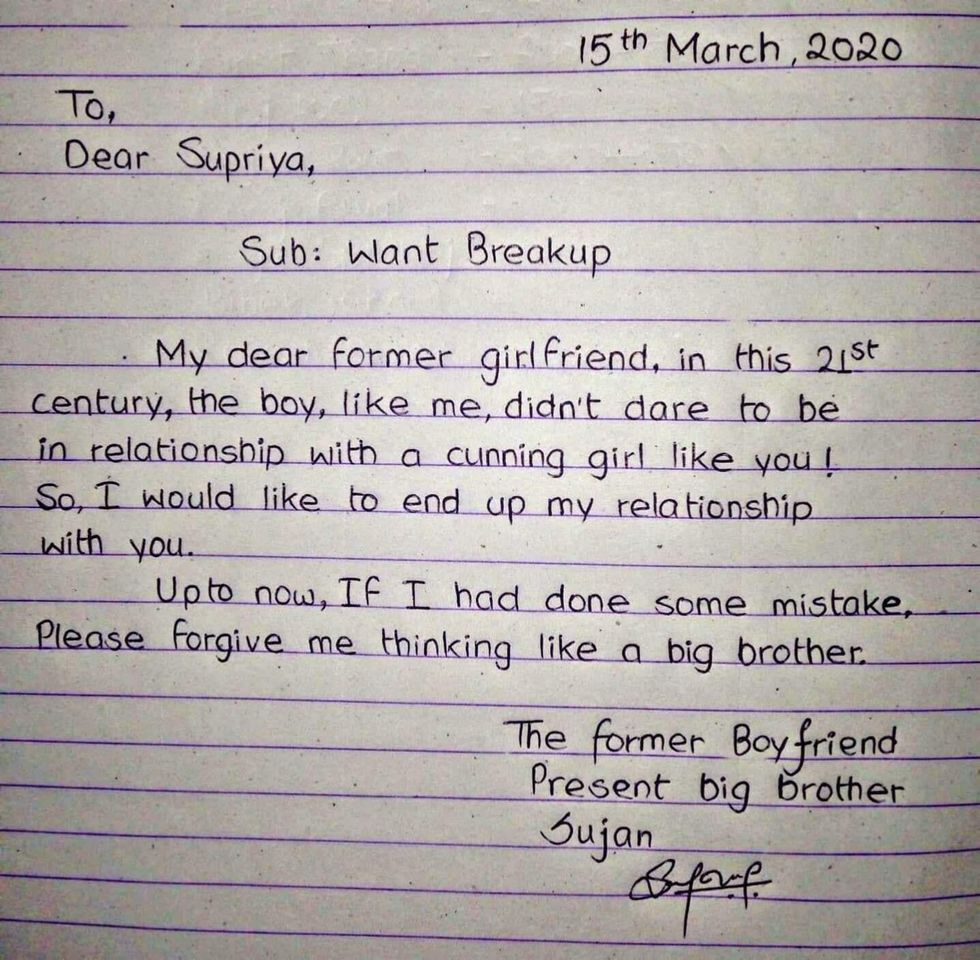 15th March, 2020
To,
Dear Supriya,
Sub: Want Breakup
My dear former girlfriend, in this 21st
century, the boy, like me, didn't dare to be
in relationship with a cunning girl like you!
So, I would like to end up my relationship
with you.
Upto now, If I had done some mistake,
Please forgive me thinking like a big brother.
The former Boyfriend
Present big brother
Sujan